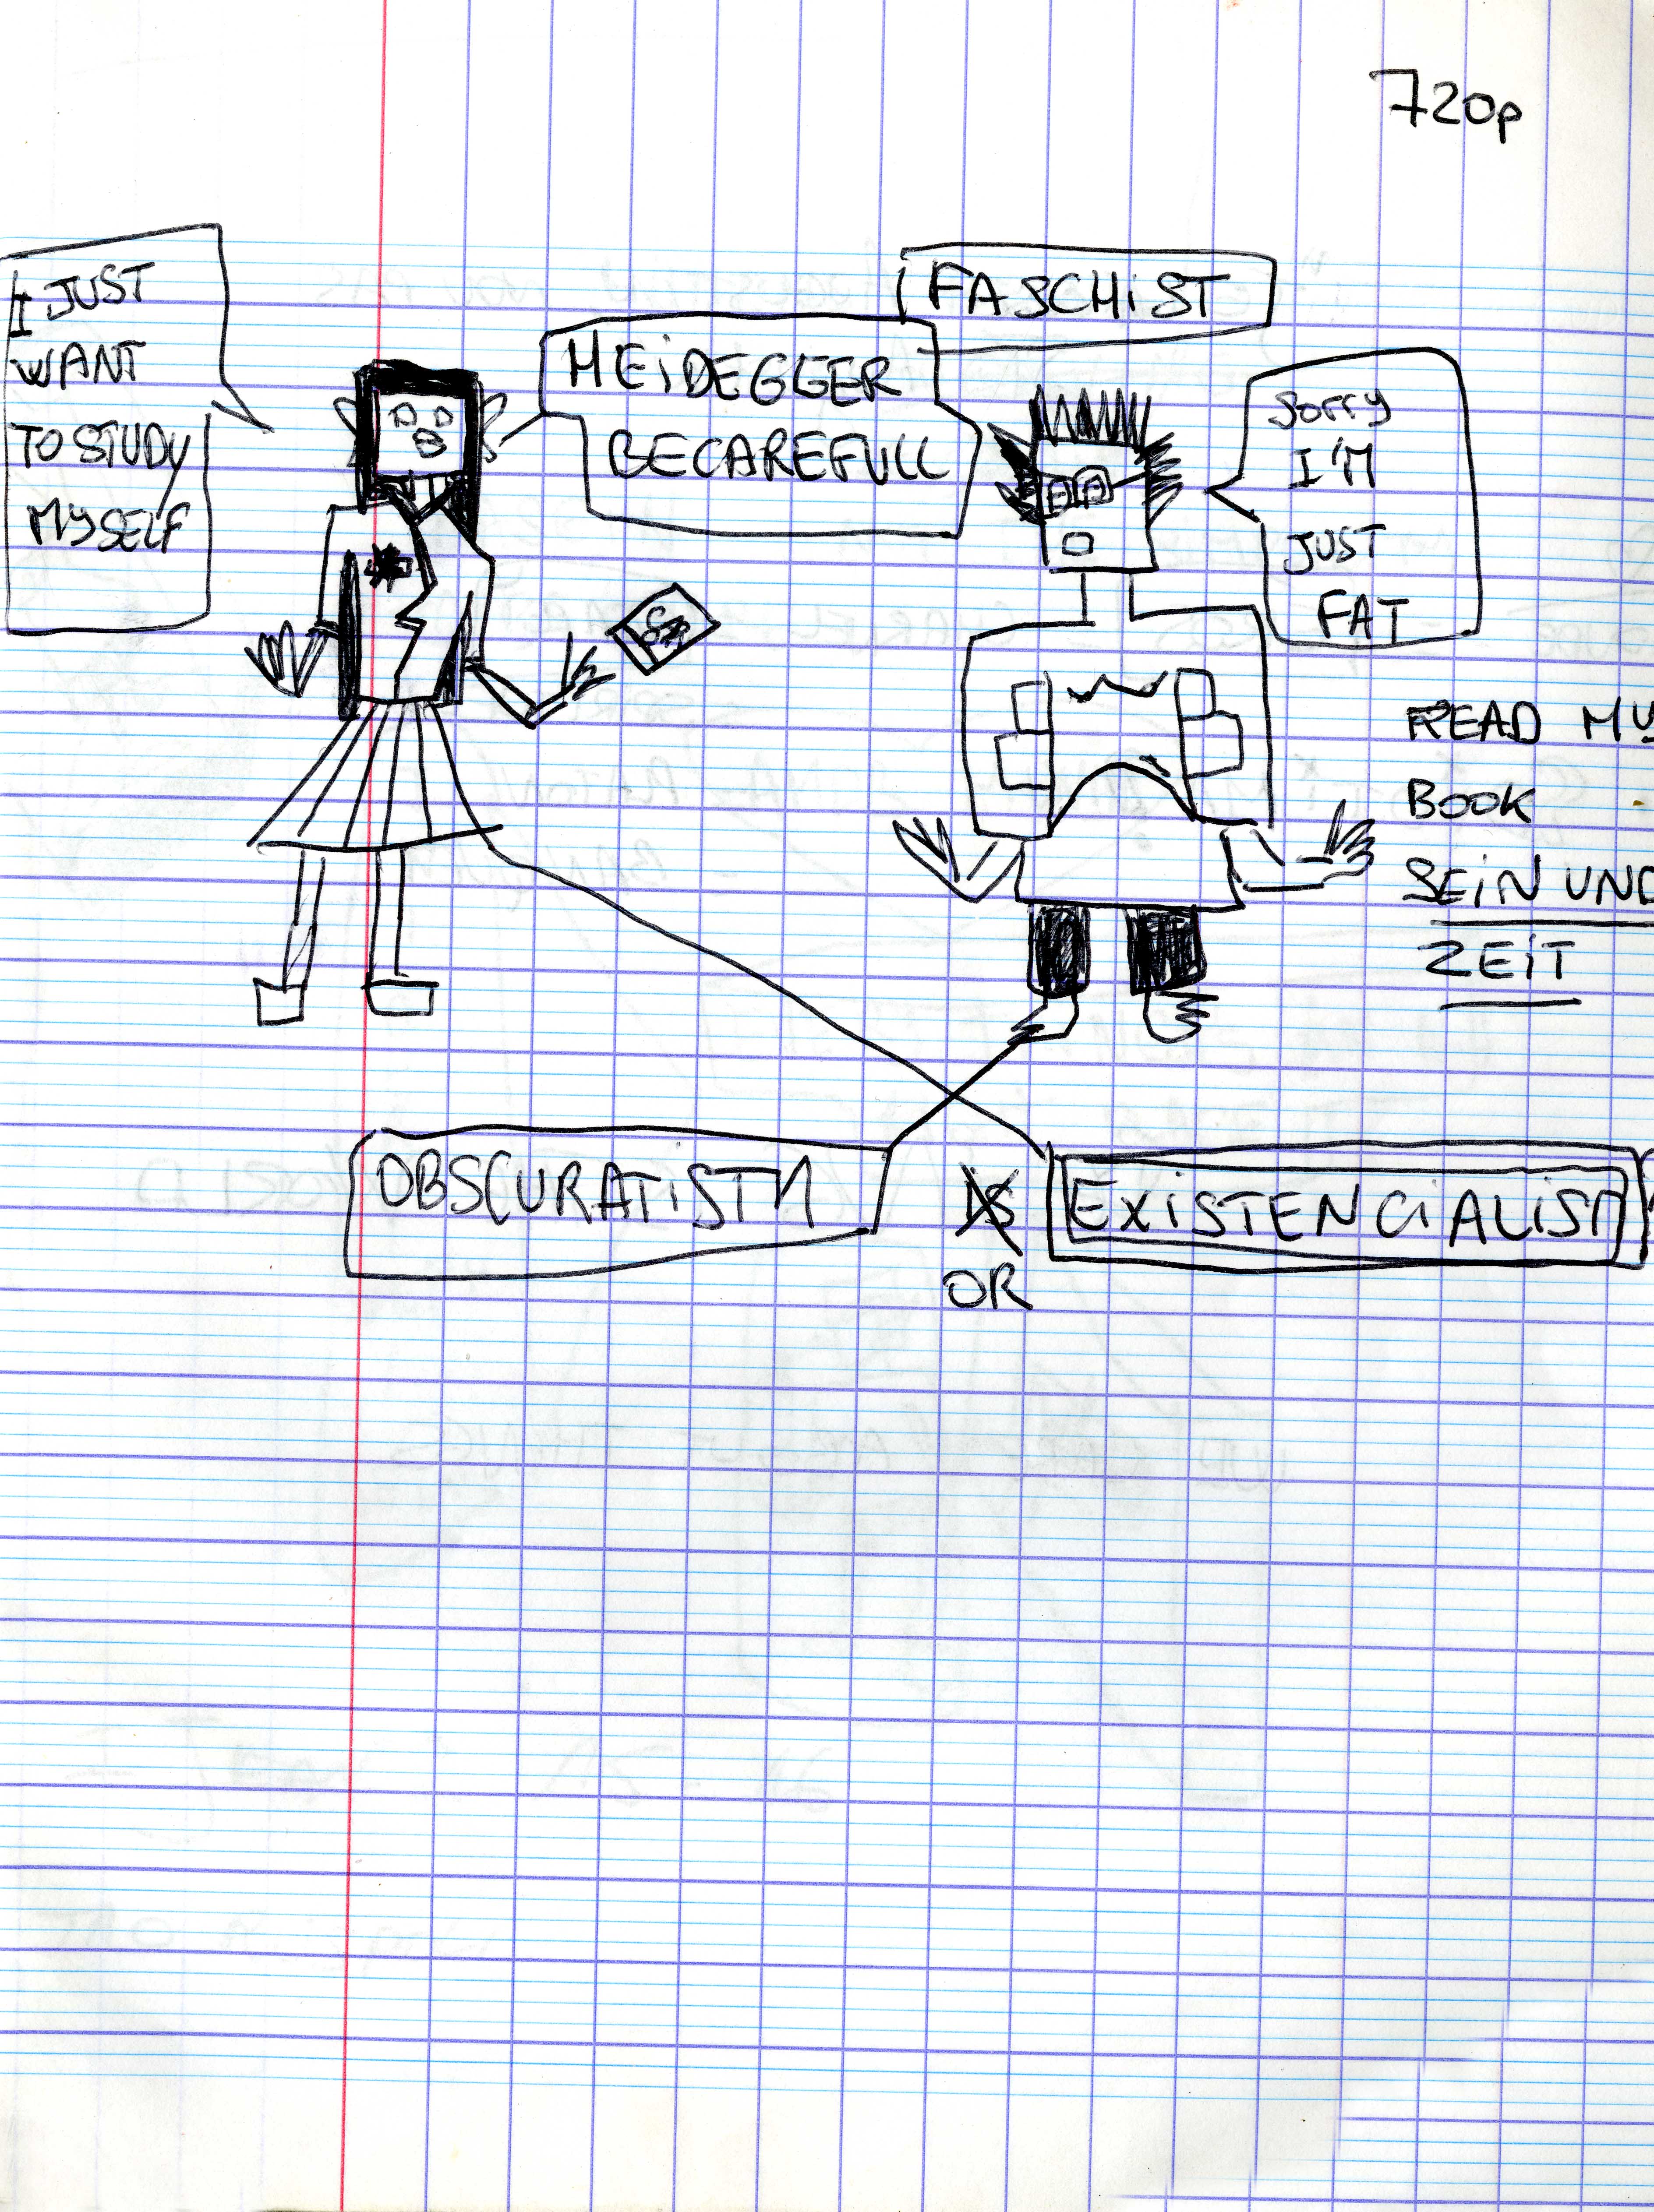 720p
I JUST
WANT
TO STUDY
MYSELF
HEIDEGGER
BECAREFULL
FASCHIST
Sorry
I'M
JUST
FAT
READ MY
BOOK
SEIN UND
ZEIT
OBSCURATISM
OR
EXISTENCIALISM